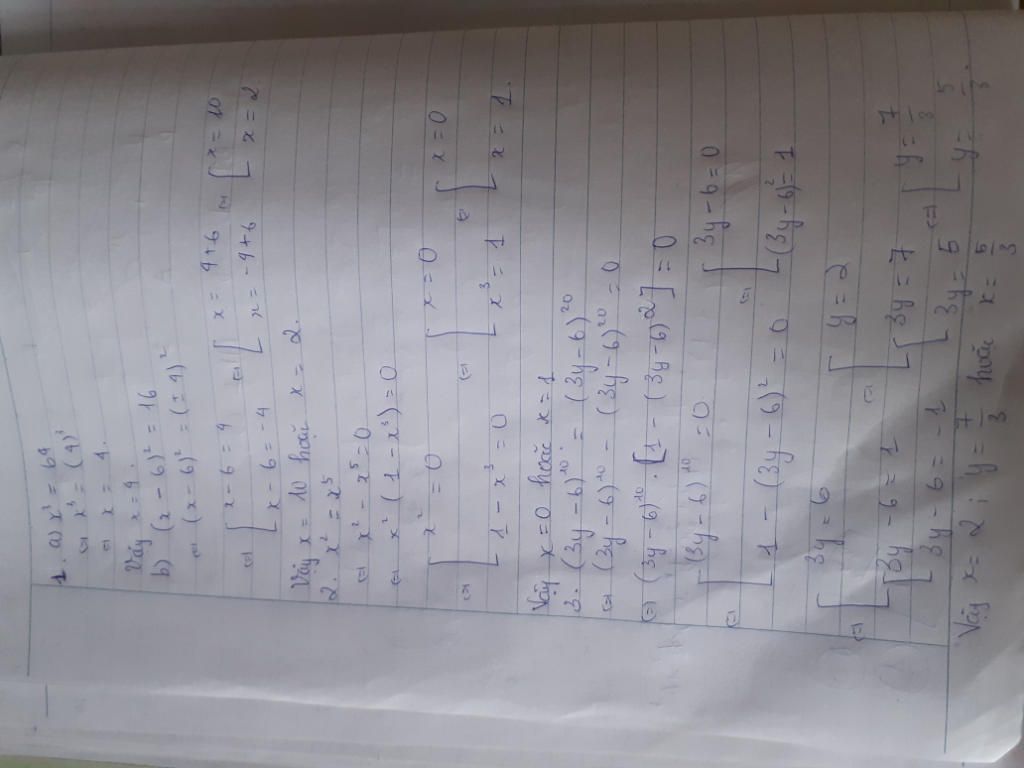 1. a) x³ = 64
⇔ x³ = (4)³
⇔ x = 4.
Vậy x = 4.
b) (x - 6)² = 16
⇔ (x - 6)² = (± 4)²
⇔ [ x - 6 = 4 ⇔ [ x = 4 + 6 ⇔ [ x = 10
[ x - 6 = -4 [ x = -4 + 6 [ x = 2.
Vậy x = 10 hoặc x = 2.
2. x² = x⁵
⇔ x² - x⁵ = 0
⇔ x² (1 - x³) = 0
⇔ [ x² = 0 ⇔ [ x = 0 ⇔ [ x = 0
[ 1 - x³ = 0 [ x³ = 1 [ x = 1.
Vậy x = 0 hoặc x = 1
3. (3y - 6)¹⁰ = (3y - 6)²⁰
⇔ (3y - 6)¹⁰ - (3y - 6)²⁰ = 0
⇔ (3y - 6)¹⁰ . [1 - (3y - 6)²] = 0
⇔ [ (3y - 6)¹⁰ = 0 ⇔ [ 3y - 6 = 0
[ 1 - (3y - 6)² = 0 [ (3y - 6)² = 1
⇔ [ 3y = 6 ⇔ [ y = 2
[ [ 3y - 6 = 1 [ [ 3y = 7 ⇔ [ y = 7/3
[ 3y - 6 = -1 [ 3y = 5 [ y = 5/3.
Vậy x = 2 ; y = 7/3 hoặc x = 5/3